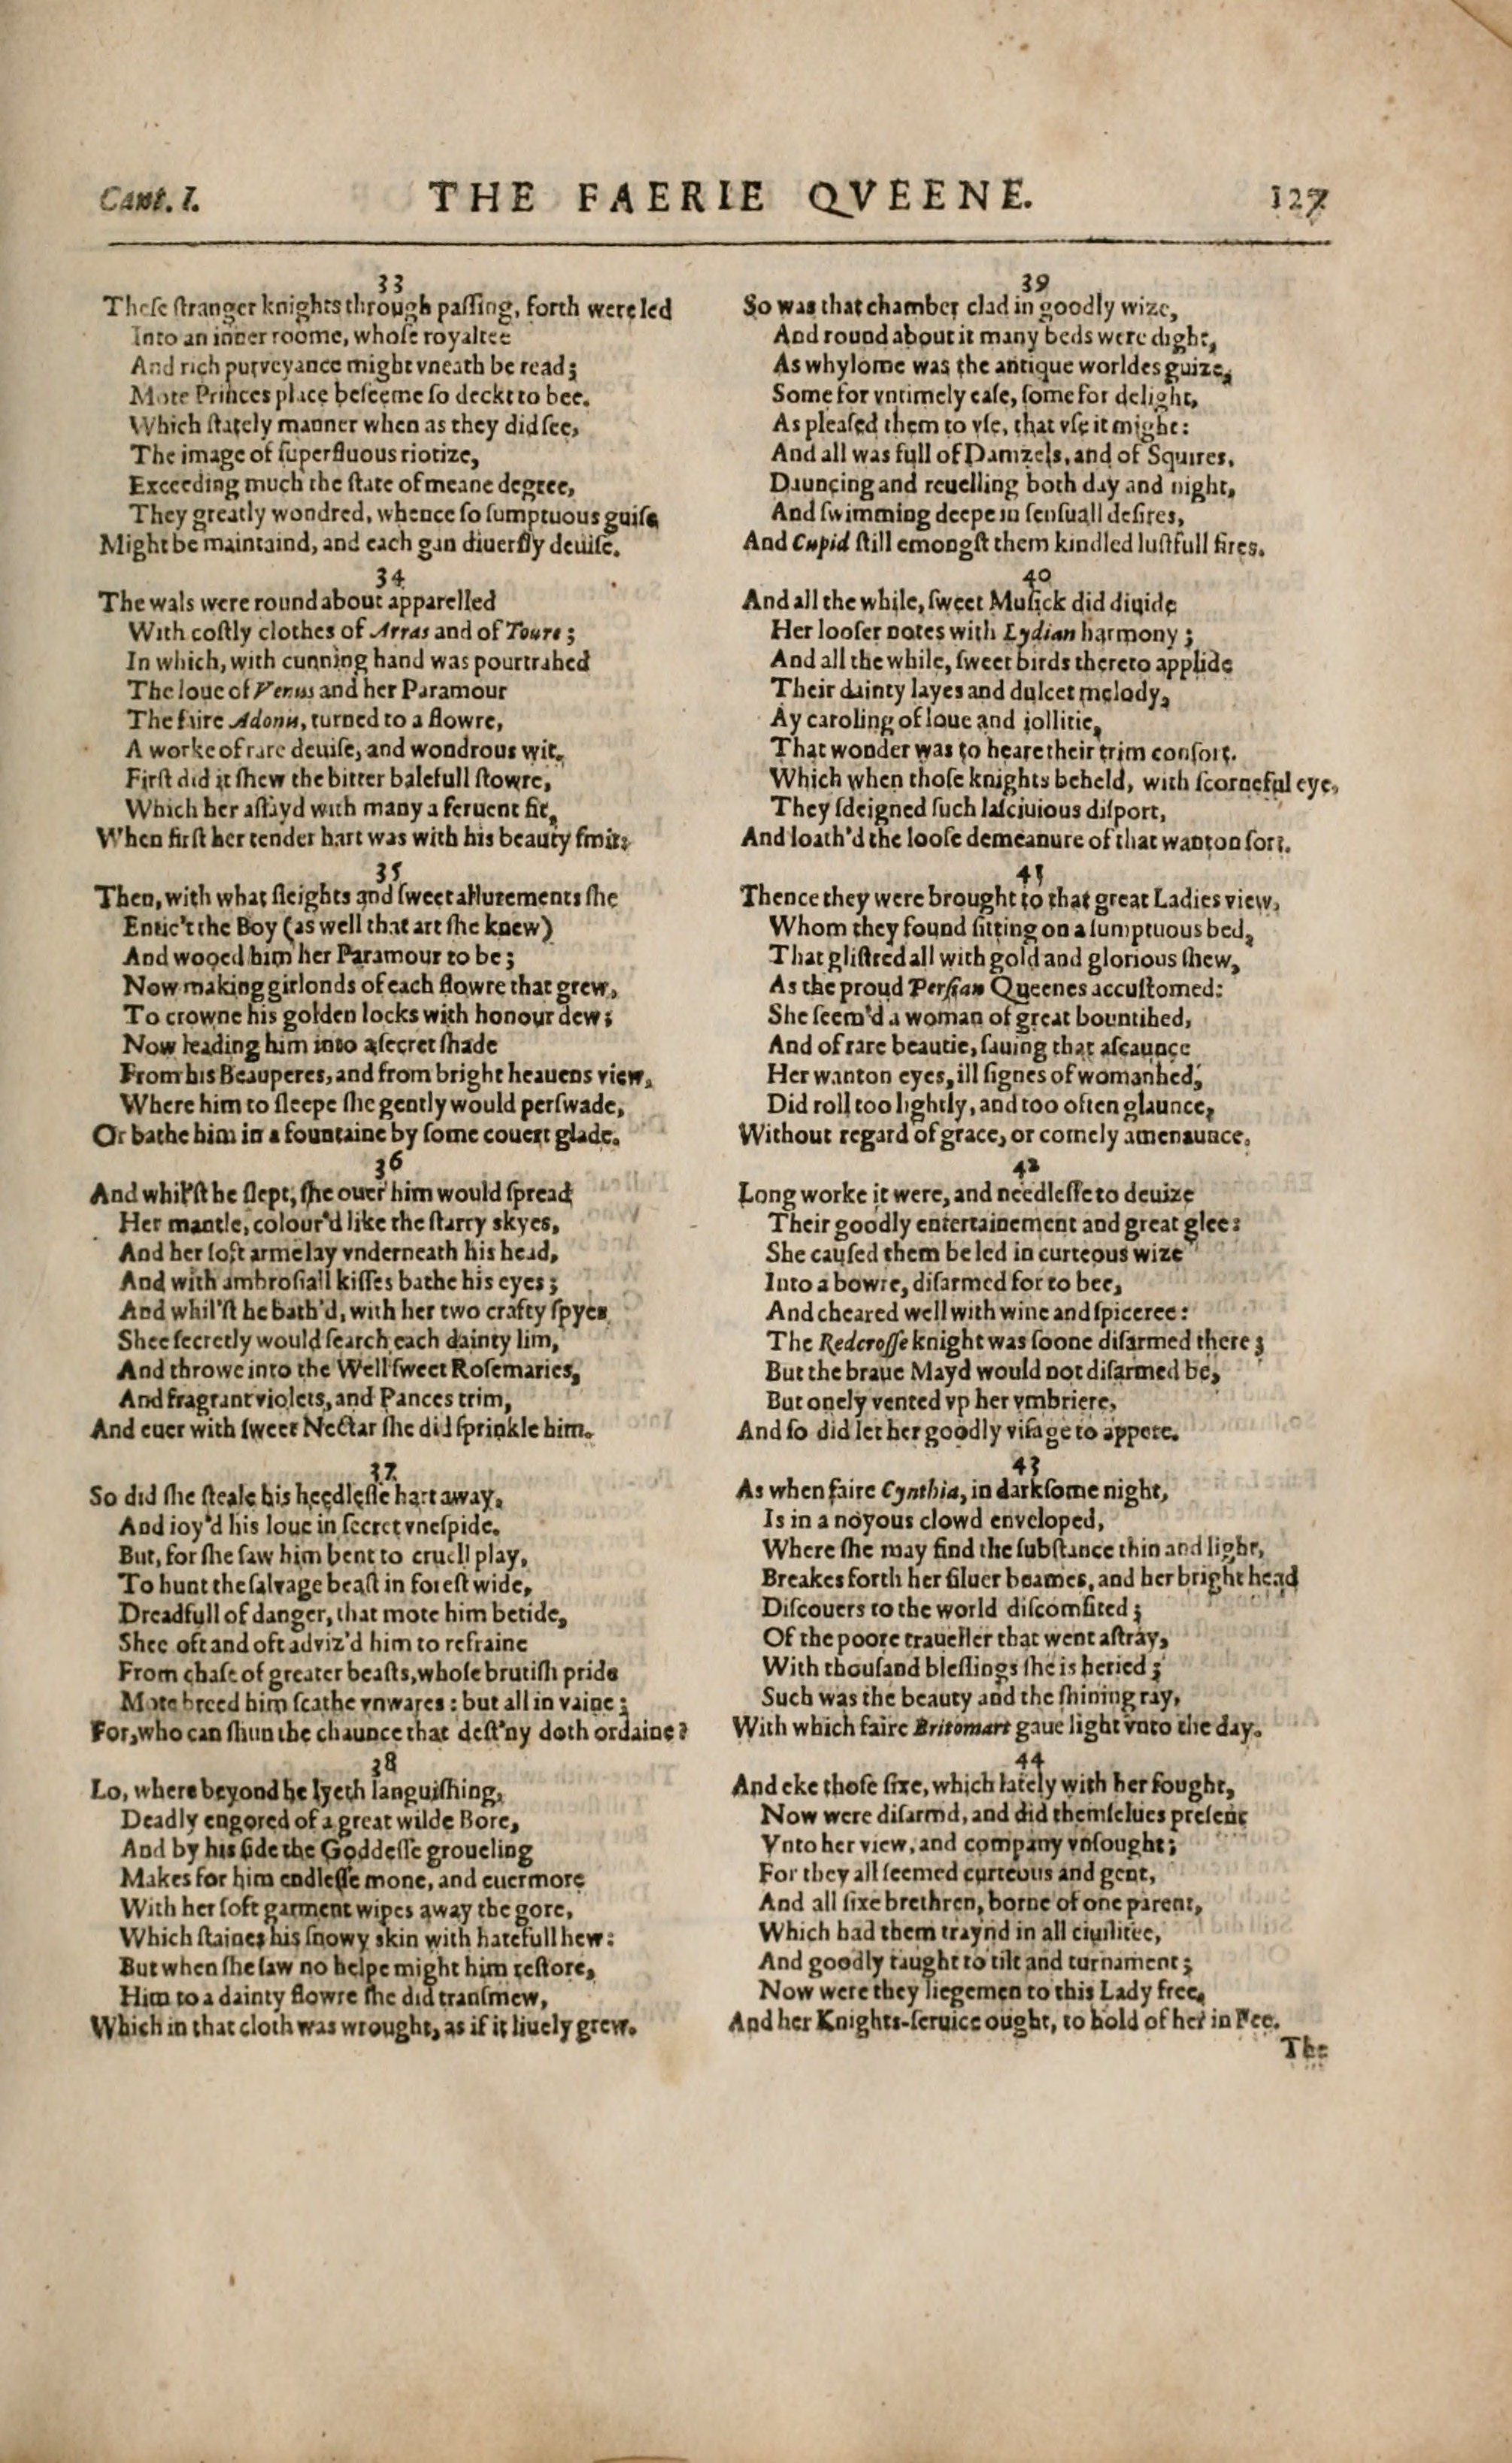 Cant. I. THE FAERIE QVEENE. 127
33
Theſe ſtranger knights through paſſing, forth were led
Into an inner roome, whoſe royaltee
And rich purveyance might vneath be read;
Mote Princes place beſeeme ſo deckt to bee.
Which ſtately manner when as they did ſee,
The image of ſuperfluous riotize,
Exceeding much the ſtate of meane degree,
They greatly wondred, whence ſo ſumptuous guiſe
Might be maintaind, and each gan diuerſly deuiſe.
34
The wals were round about apparelled
With coſtly clothes of Arras and of Toure;
In which, with cunning hand was pourtrahed
The loue of Venus and her Paramour
The faire Adonis, turned to a flowre,
A worke of rare deuiſe, and wondrous wit.
Firſt did it ſhew the bitter balefull ſtowre,
Which her aſſayd with many a feruent fit,
When firſt her tender hart was with his beauty ſmit:
35
Then, with what ſleights and ſweet allurements ſhe
Entic't the Boy (as well that art ſhe knew)
And wooed him her Paramour to be;
Now making girlonds of each flowre that grew,
To crowne his golden locks with honour dew;
Now leading him into a ſecret ſhade
From his Beauperes, and from bright heauens view,
Where him to ſleepe ſhe gently would perſwade,
Or bathe him in a fountaine by ſome couert glade.
36
And whil'ſt he ſlept, ſhe ouer him would ſpread
Her mantle, colour'd like the ſtarry skyes,
And her ſoft arme lay vnderneath his head,
And with ambroſiall kiſſes bathe his eyes;
And whil'ſt he bath'd, with her two crafty ſpyes
Shee ſecretly would ſearch each dainty lim,
And throwe into the Well ſweet Roſemaries,
And fragrant violets, and Pances trim,
And euer with ſweet Nectar ſhe did ſprinkle him.
37
So did ſhe ſteale his heedleſſe hart away,
And ioy'd his loue in ſecret vneſpide.
But, for ſhe ſaw him bent to cruell play,
To hunt the ſalvage beaſt in foreſt wide,
Dreadfull of danger, that mote him betide,
Shee oft and oft adviz'd him to refraine
From chaſe of greater beaſts, whoſe brutiſh pride
Mote breed him ſcathe vnwares: but all in vaine;
For, who can ſhun the chaunce that deſt'ny doth ordaine?
38
Lo, where beyond he lyeth languiſhing,
Deadly engored of a great wilde Bore,
And by his ſide the Goddeſſe groueling
Makes for him endleſſe mone, and euermore
With her ſoft garment wipes away the gore,
Which ſtaines his ſnowy skin with hatefull hew:
But when ſhe ſaw no helpe might him reſtore,
Him to a dainty flowre ſhe did tranſmew,
Which in that cloth was wrought, as if it liuely grew.
39
So was that chamber clad in goodly wize,
And round about it many beds were dight,
As whylome was the antique worldes guize,
Some for vntimely eaſe, ſome for delight,
As pleaſed them to vſe, that vſe it might:
And all was full of Damzels, and of Squires,
Dauncing and reuelling both day and night,
And ſwimming deepe in ſenſuall deſires,
And Cupid ſtill emongſt them kindled luſtfull fires.
40
And all the while, ſweet Muſick did diuide
Her looſer notes with Lydian harmony;
And all the while, ſweet birds thereto applide
Their dainty layes and dulcet melody,
Ay caroling of loue and iollitie,
That wonder was to heare their trim conſort.
Which when thoſe knights beheld, with ſcorneful eye,
They ſdeigned ſuch laſciuious diſport,
And loath'd the looſe demeanure of that wanton ſort.
41
Thence they were brought to that great Ladies view,
Whom they found ſitting on a ſumptuous bed,
That gliſtred all with gold and glorious ſhew,
As the proud Perſian Queenes accuſtomed:
She ſeem'd a woman of great bountihed,
And of rare beautie, ſauing that aſcaunce
Her wanton eyes, ill ſignes of womanhed,
Did roll too lightly, and too often glaunce,
Without regard of grace, or comely amenaunce.
42
Long worke it were, and needleſſe to deuize
Their goodly entertainement and great glee:
She cauſed them be led in curteous wize
Into a bowre, diſarmed for to bee,
And cheared well with wine and ſpiceree:
The Redcroſſe knight was ſoone diſarmed there;
But the braue Mayd would not diſarmed be,
But onely vented vp her vmbriere,
And ſo did let her goodly viſage to appere.
43
As when faire Cynthia, in darkſome night,
Is in a noyous clowd enveloped,
Where ſhe may find the ſubſtance thin and light,
Breakes forth her ſiluer beames, and her bright head
Diſcouers to the world diſcomfited;
Of the poore traueller that went aſtray,
With thouſand bleſſings ſhe is heried;
Such was the beauty and the ſhining ray,
With which faire Britomart gaue light vnto the day.
44
And eke thoſe ſixe, which lately with her fought,
Now were diſarmd, and did themſelues preſent
Vnto her view, and company vnſought;
For they all ſeemed curteous and gent,
And all ſixe brethren, borne of one parent,
Which had them traynd in all ciuilitee,
And goodly taught to tilt and turnament;
Now were they liegemen to this Lady free,
And her Knights-ſeruice ought, to hold of her in Fee.
The